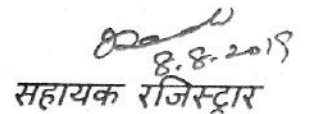 8.8.2019
सहायक रजिस्ट्रार